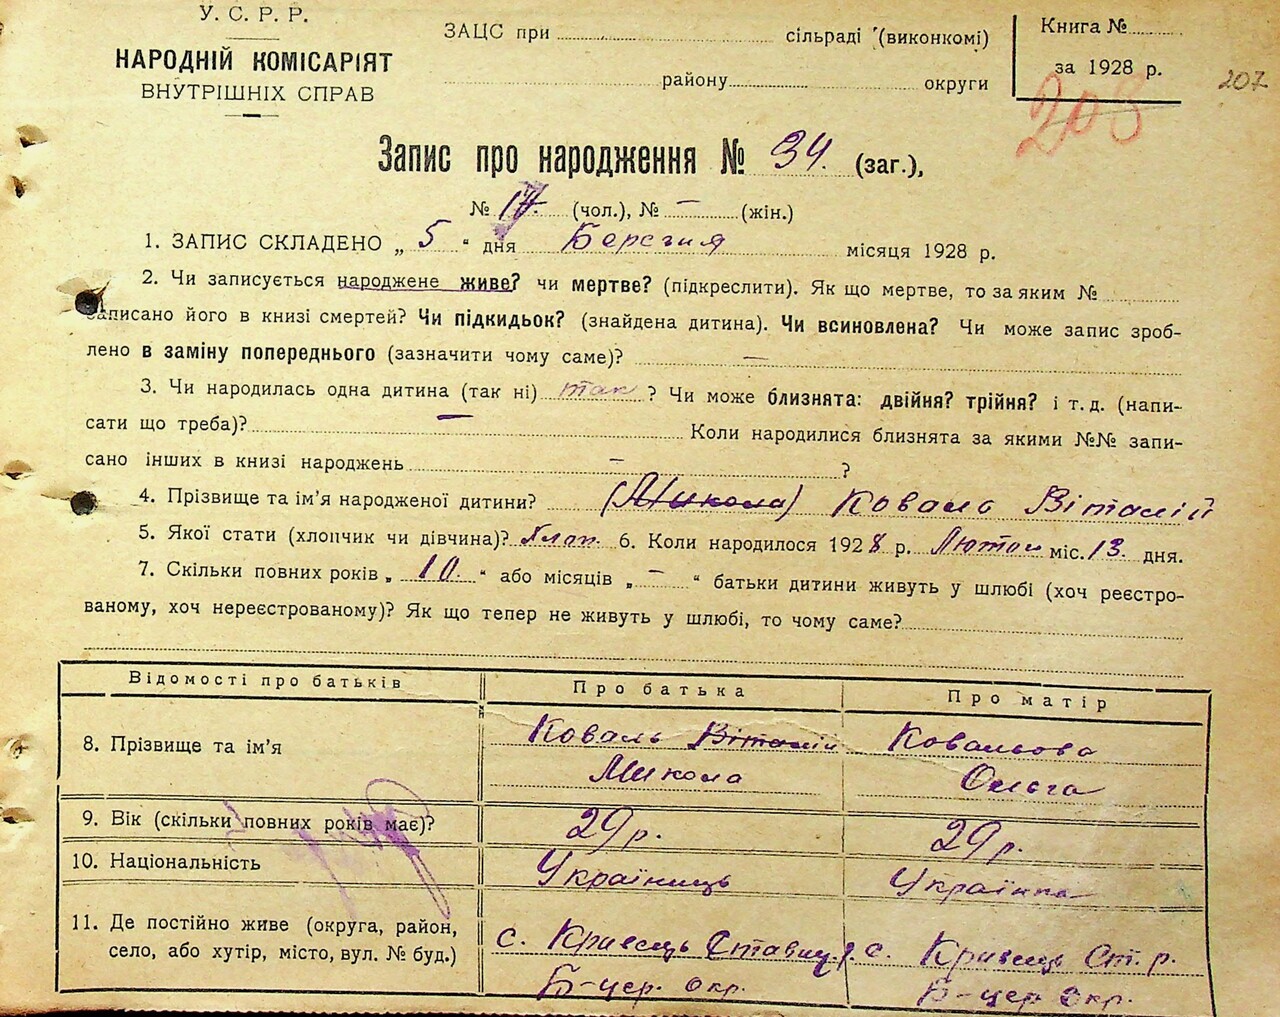 У. С. Р. Р.
НАРОДНІЙ КОМІСАРІЯТ
ВНУТРІШНІХ СПРАВ
ЗАЦС при сільраді (виконкомі)
району округи
Книга №
за 1928 р.
207
208
Запис про народження № 34. (заг.),
№ 17. (чол.), № – (жін.)
1. ЗАПИС СКЛАДЕНО „ 5 “ дня Березня місяця 1928 р.
2. Чи записується народжене живе? чи мертве? (підкреслити). Як що мертве, то за яким №
записано його в книзі смертей? Чи підкидьок? (знайдена дитина). Чи всиновлена? Чи може запис зроб-
лено в заміну попереднього (зазначити чому саме)? —
3. Чи народилась одна дитина (так ні) так ? Чи може близнята: двійня? трійня? і т. д. (напи-
сати що треба)? — Коли народилися близнята за якими №№ запи-
сано інших в книзі народжень — ?
4. Прізвище та ім'я народженої дитини? (Микола) Коваль Віталій
5. Якої стати (хлопчик чи дівчина)? Хлоп. 6. Коли народилося 1928 р. Лютого міс. 13. дня.
7. Скільки повних років „ 10. “ або місяців „ – “ батьки дитини живуть у шлюбі (хоч реєстро-
ваному, хоч нереєстрованому)? Як що тепер не живуть у шлюбі, то чому саме?
Відомості про батьків Про батька Про матір
8. Прізвище та ім'я Коваль Віталій Ковальова
Микола Ольга
9. Вік (скільки повних років має)? 29 р. 29 р.
10. Національність Українець Українка
11. Де постійно живе (округа, район,
село, або хутір, місто, вул. № буд.)
с. Кривець Ставищ. р. с. Кривець Ст. р.
Б-цер. окр. Б-цер окр.